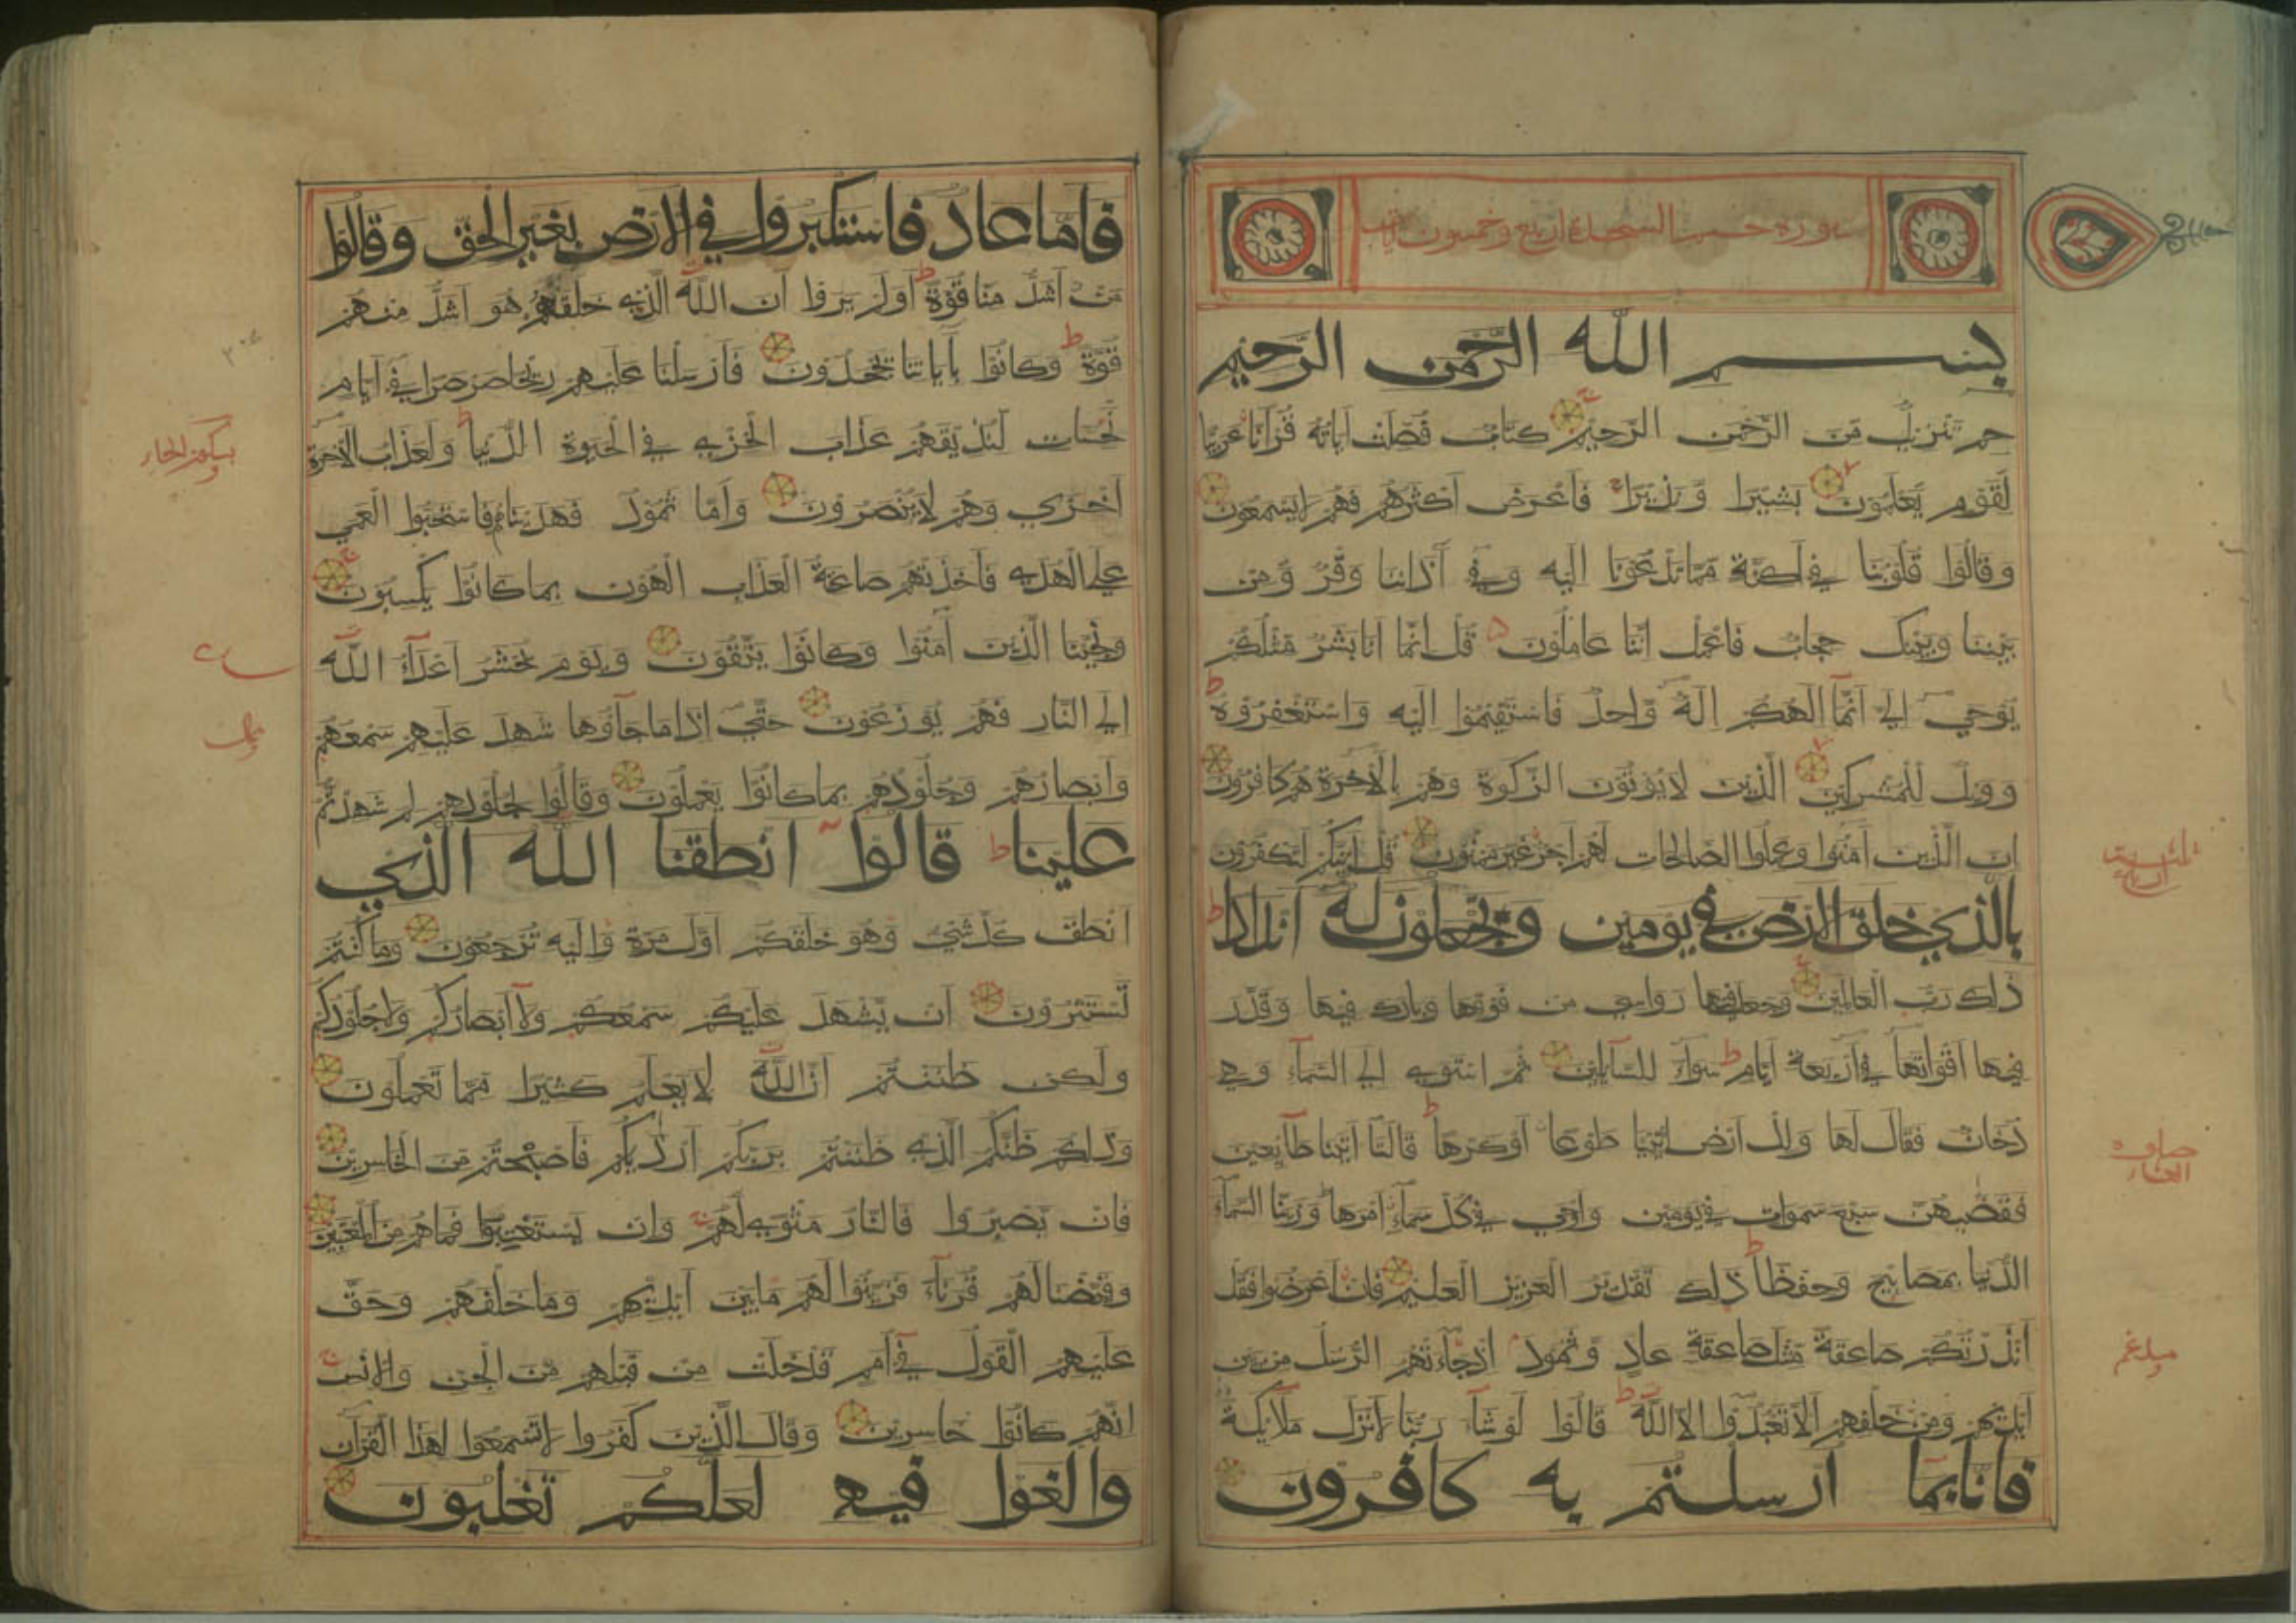 سورة حم السجدة اربع وخمسون اية
بسم الله الرحمن الرحيم
حم تنزيل من الرحمن الرحيم كتاب فصلت اياته قرانا عربيا
لقوم يعلمون بشيرا ونذيرا فاعرض اكثرهم فهم لا يسمعون
وقالوا قلوبنا في اكنة مما تدعونا اليه وفي آذاننا وقر ومن
بيننا وبينك حجاب فاعمل اننا عاملون قل انما انا بشر مثلكم
يوحى الي انما الهكم اله واحد فاستقيموا اليه واستغفروه
وويل للمشركين الذين لا يؤتون الزكوة وهم بالاخرة هم كافرون
ان الذين امنوا وعملوا الصالحات لهم اجر غير ممنون قل ائنكم لتكفرون
بالذي خلق الارض في يومين وتجعلون له اندادا
ذلك رب العالمين وجعل فيها رواسي من فوقها وبارك فيها وقدر
فيها اقواتها في اربعة ايام سواء للسائلين ثم استوى الى السماء وهي
دخان فقال لها وللارض ائتيا طوعا او كرها قالتا اتينا طائعين
فقضيهن سبع سموات في يومين واوحى في كل سماء امرها وزينا السماء
الدنيا بمصابيح وحفظا ذلك تقدير العزيز العليم فان اعرضوا فقل
انذرتكم صاعقة مثل صاعقة عاد وثمود اذ جاءتهم الرسل من بين
ايديهم ومن خلفهم الا تعبدوا الا الله قالوا لو شاء ربنا لانزل ملائكة
فانا بما ارسلتم به كافرون
فاما عاد فاستكبروا في الارض بغير الحق وقالوا
من اشد منا قوة اولم يروا ان الله الذي خلقهم هو اشد منهم
قوة وكانوا بآياتنا يجحدون فارسلنا عليهم ريحا صرصرا في ايام
نحسات لنذيقهم عذاب الخزي في الحيوة الدنيا ولعذاب الآخرة
اخزى وهم لا ينصرون واما ثمود فهديناهم فاستحبوا العمى
على الهدى فاخذتهم صاعقة العذاب الهون بما كانوا يكسبون
ونجينا الذين آمنوا وكانوا يتقون ويوم يحشر اعداء الله
الى النار فهم يوزعون حتى اذا ما جاؤها شهد عليهم سمعهم
وابصارهم وجلودهم بما كانوا يعملون وقالوا لجلودهم لم شهدتم
علينا قالوا انطقنا الله الذي
انطق كل شيء وهو خلقكم اول مرة واليه ترجعون وما كنتم
تستترون ان يشهد عليكم سمعكم ولا ابصاركم ولا جلودكم
ولكن ظننتم ان الله لا يعلم كثيرا مما تعملون
وذلكم ظنكم الذي ظننتم بربكم ارديكم فاصبحتم من الخاسرين
فان يصبروا فالنار مثوى لهم وان يستعتبوا فما هم من المعتبين
وقيضنا لهم قرناء فزينوا لهم ما بين ايديهم وما خلفهم وحق
عليهم القول في امم قد خلت من قبلهم من الجن والانس
انهم كانوا خاسرين وقال الذين كفروا لا تسمعوا لهذا القرآن
والغوا فيه لعلكم تغلبون